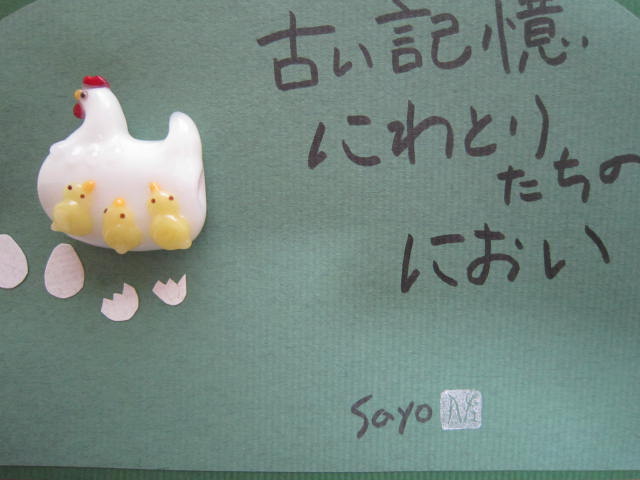 古い記憶
にわとり
たちの
におい
sayo